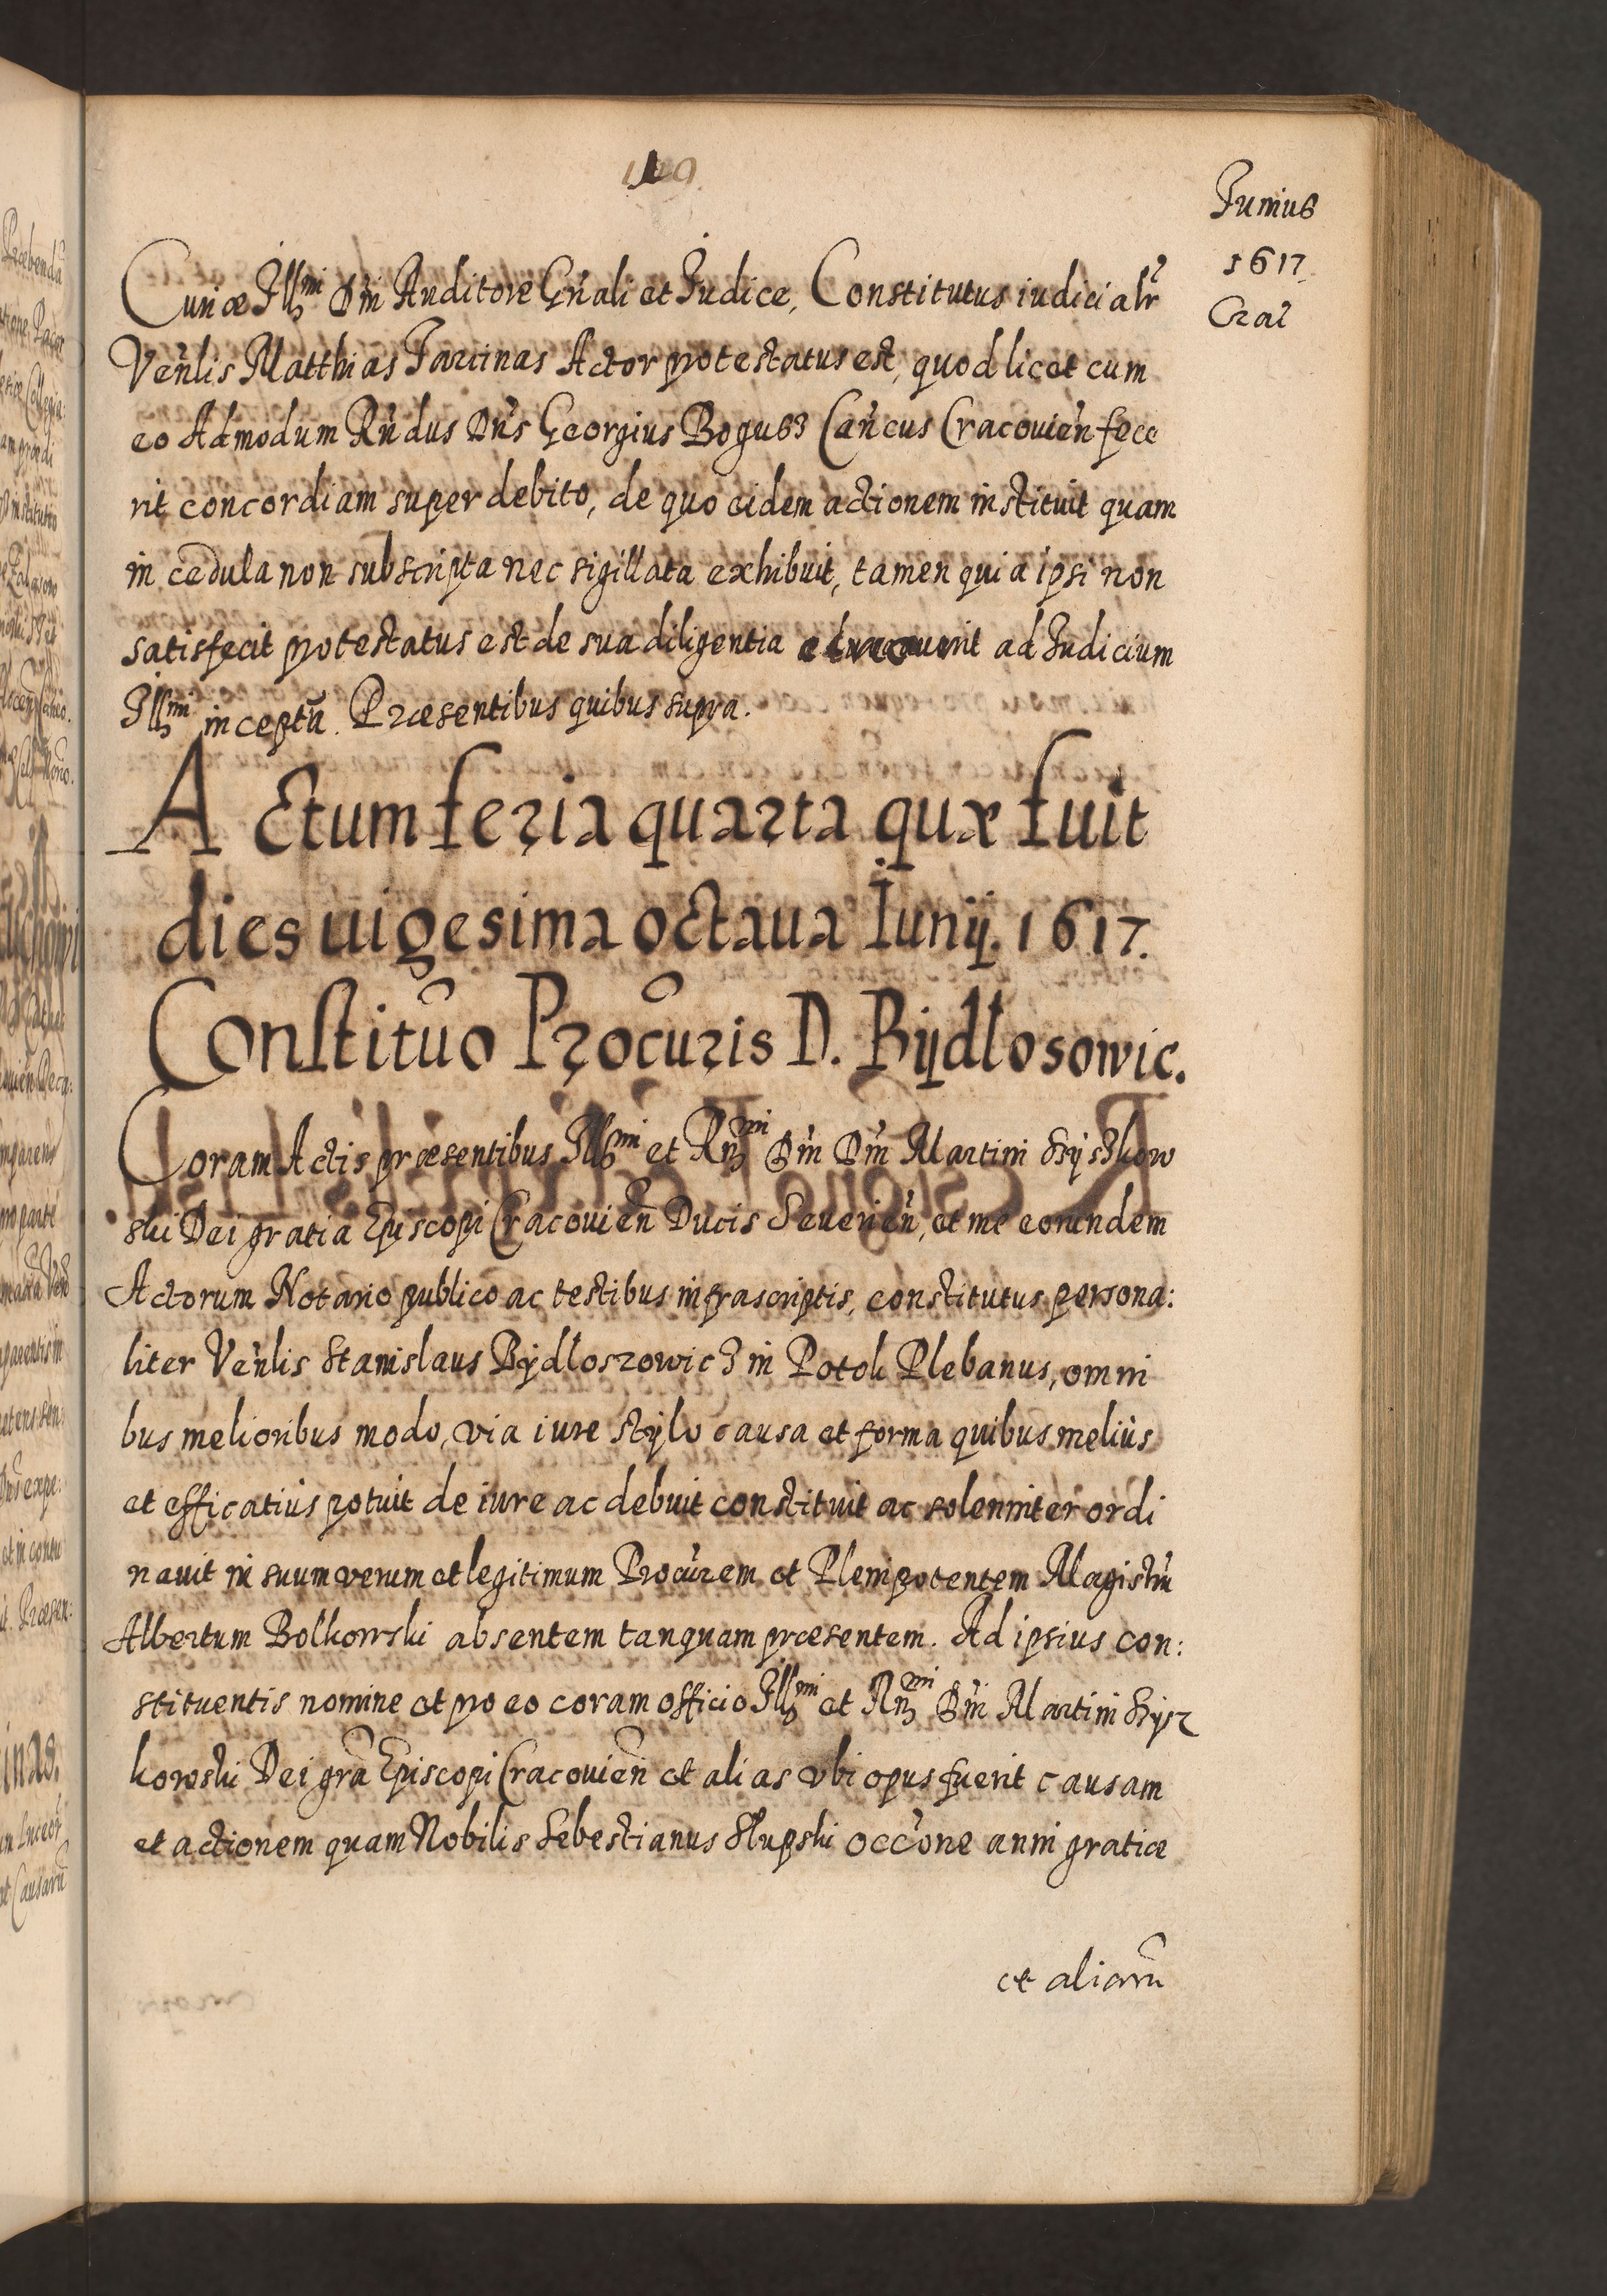 Junius
1617
Curiæ Illmi Dni Auditore Gnali et Judice, Constitutus iudicialr
Venlis Matthias Jarcinas Actor protestatus est, quod licet cum
eo Admodum Rndus Dns Georgius Bogusz Cancus Cracovien fece
rit concordiam super debito, de quo eidem actionem instituit quam
in cedula non subscripta nec sigillata exhibuit, tamen quia ipsi non
satisfecit protestatus est de sua diligentia ad Judicium
Illmi inceptu. Præsentibus quibus supra.
Actum feria quarta quæ fuit
dies uigesima octaua Iunij. 1617.
Constituo Procuris D. Bÿdlosowic.
Coram Actis præsentibus Illmi et Rmi Dni Dni Martini Szyszkow
ski Dei gratia Episcopi Cracouien Ducis Seuerien, et me eorundem
Actorum Notario publico ac testibus infrascriptis, constitutus persona:
liter Venlis Stanislaus Bÿdloszowicz in Potok Plebanus, omni
bus melioribus modo, via iure stÿlo causa et forma quibus meliùs
et efficatiùs potuit de iure ac debuit constituit ac solenniter ordi
nauit in suum verum et legitimum Procurem et Plenipotentem Magistru
Albertum Bolkowski absentem tanquam præsentem. Ad ipsius con:
stituentis nomine et pro eo coram officio Illmi et Rmi Dni Martini Szyz
kowski Dei gra Episcopi Cracouien et alias vbi opus fuerit causam
et actionem quam Nobilis Sebestianus Slupski occone anni gratiæ
et aliaru